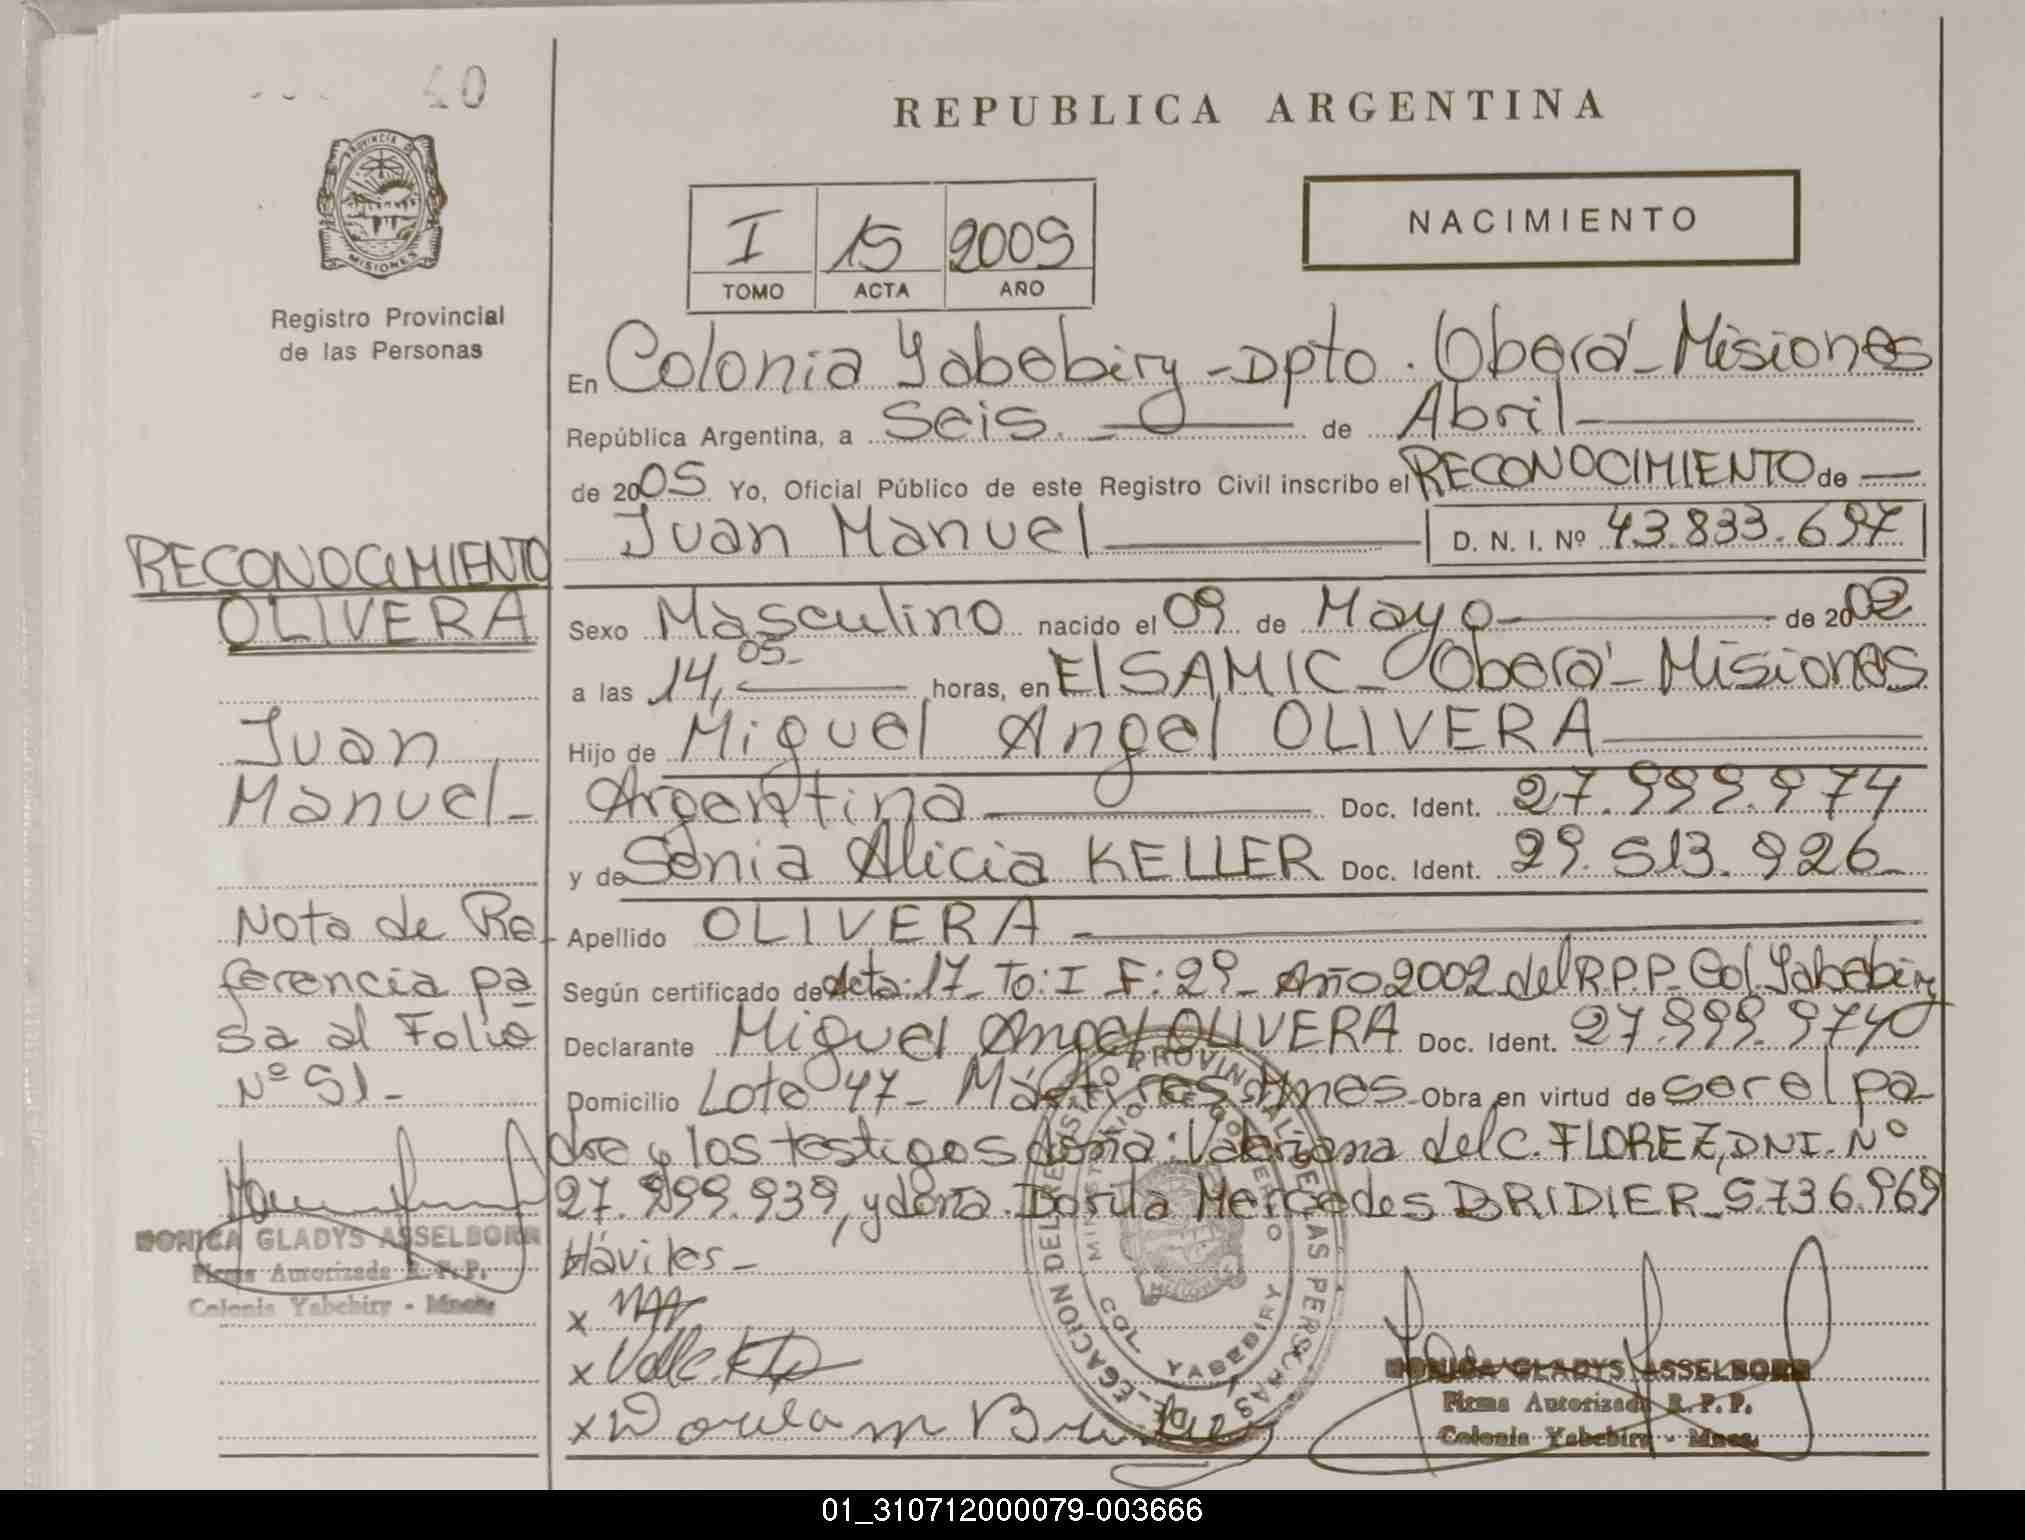 40
REPUBLICA ARGENTINA
PROVINCIA DE
MISIONES
I 15 2005
TOMO ACTA AÑO
NACIMIENTO
Registro Provincial
de las Personas
En Colonia Yabebiry - Dpto. Oberá - Misiones
República Argentina, a seis de Abril
de 2005 Yo, Oficial Público de este Registro Civil inscribo el RECONOCIMIENTO de
Juan Manuel D. N. I. Nº 43.833.697
RECONOCIMIENTO
OLIVERA
Juan
Manuel-
Nota de Re-
ferencia pa-
sa al Folio
Nº 51-
MONICA GLADYS ASSELBORN
Firma Autorizada R. P. P.
Colonia Yabebiry - Mnes.
Sexo Masculino nacido el 09 de Mayo de 2002
a las 14,05- horas, en El SAMIC - Oberá - Misiones
Hijo de Miguel Angel OLIVERA
Argentina Doc. Ident. 27.999.974
y de Sonia Alicia KELLER Doc. Ident. 29.513.926-
Apellido OLIVERA
Según certificado de Acta: 17- To: I F: 29- Año 2002 del R.P.P. Col. Yabebiry
Declarante Miguel Angel OLIVERA Doc. Ident. 27.999.974
Domicilio Lote 47- Mártires Mnes- Obra en virtud de ser el pa-
dre y los testigos doña: Valeriana del C. FLOREZ, DNI. Nº
27.999.939, y doña Dorila Mercedes BRIDIER 5.736.969
Háviles-
x
x
x
DELEGACION DEL REGISTRO PROVINCIAL DE LAS PERSONAS
MINISTERIO DE GOBIERNO
MISIONES
COL. YABEBIRY
MONICA GLADYS ASSELBORN
Firma Autorizada R. P. P.
Colonia Yabebiry - Mnes.
01_310712000079-003666